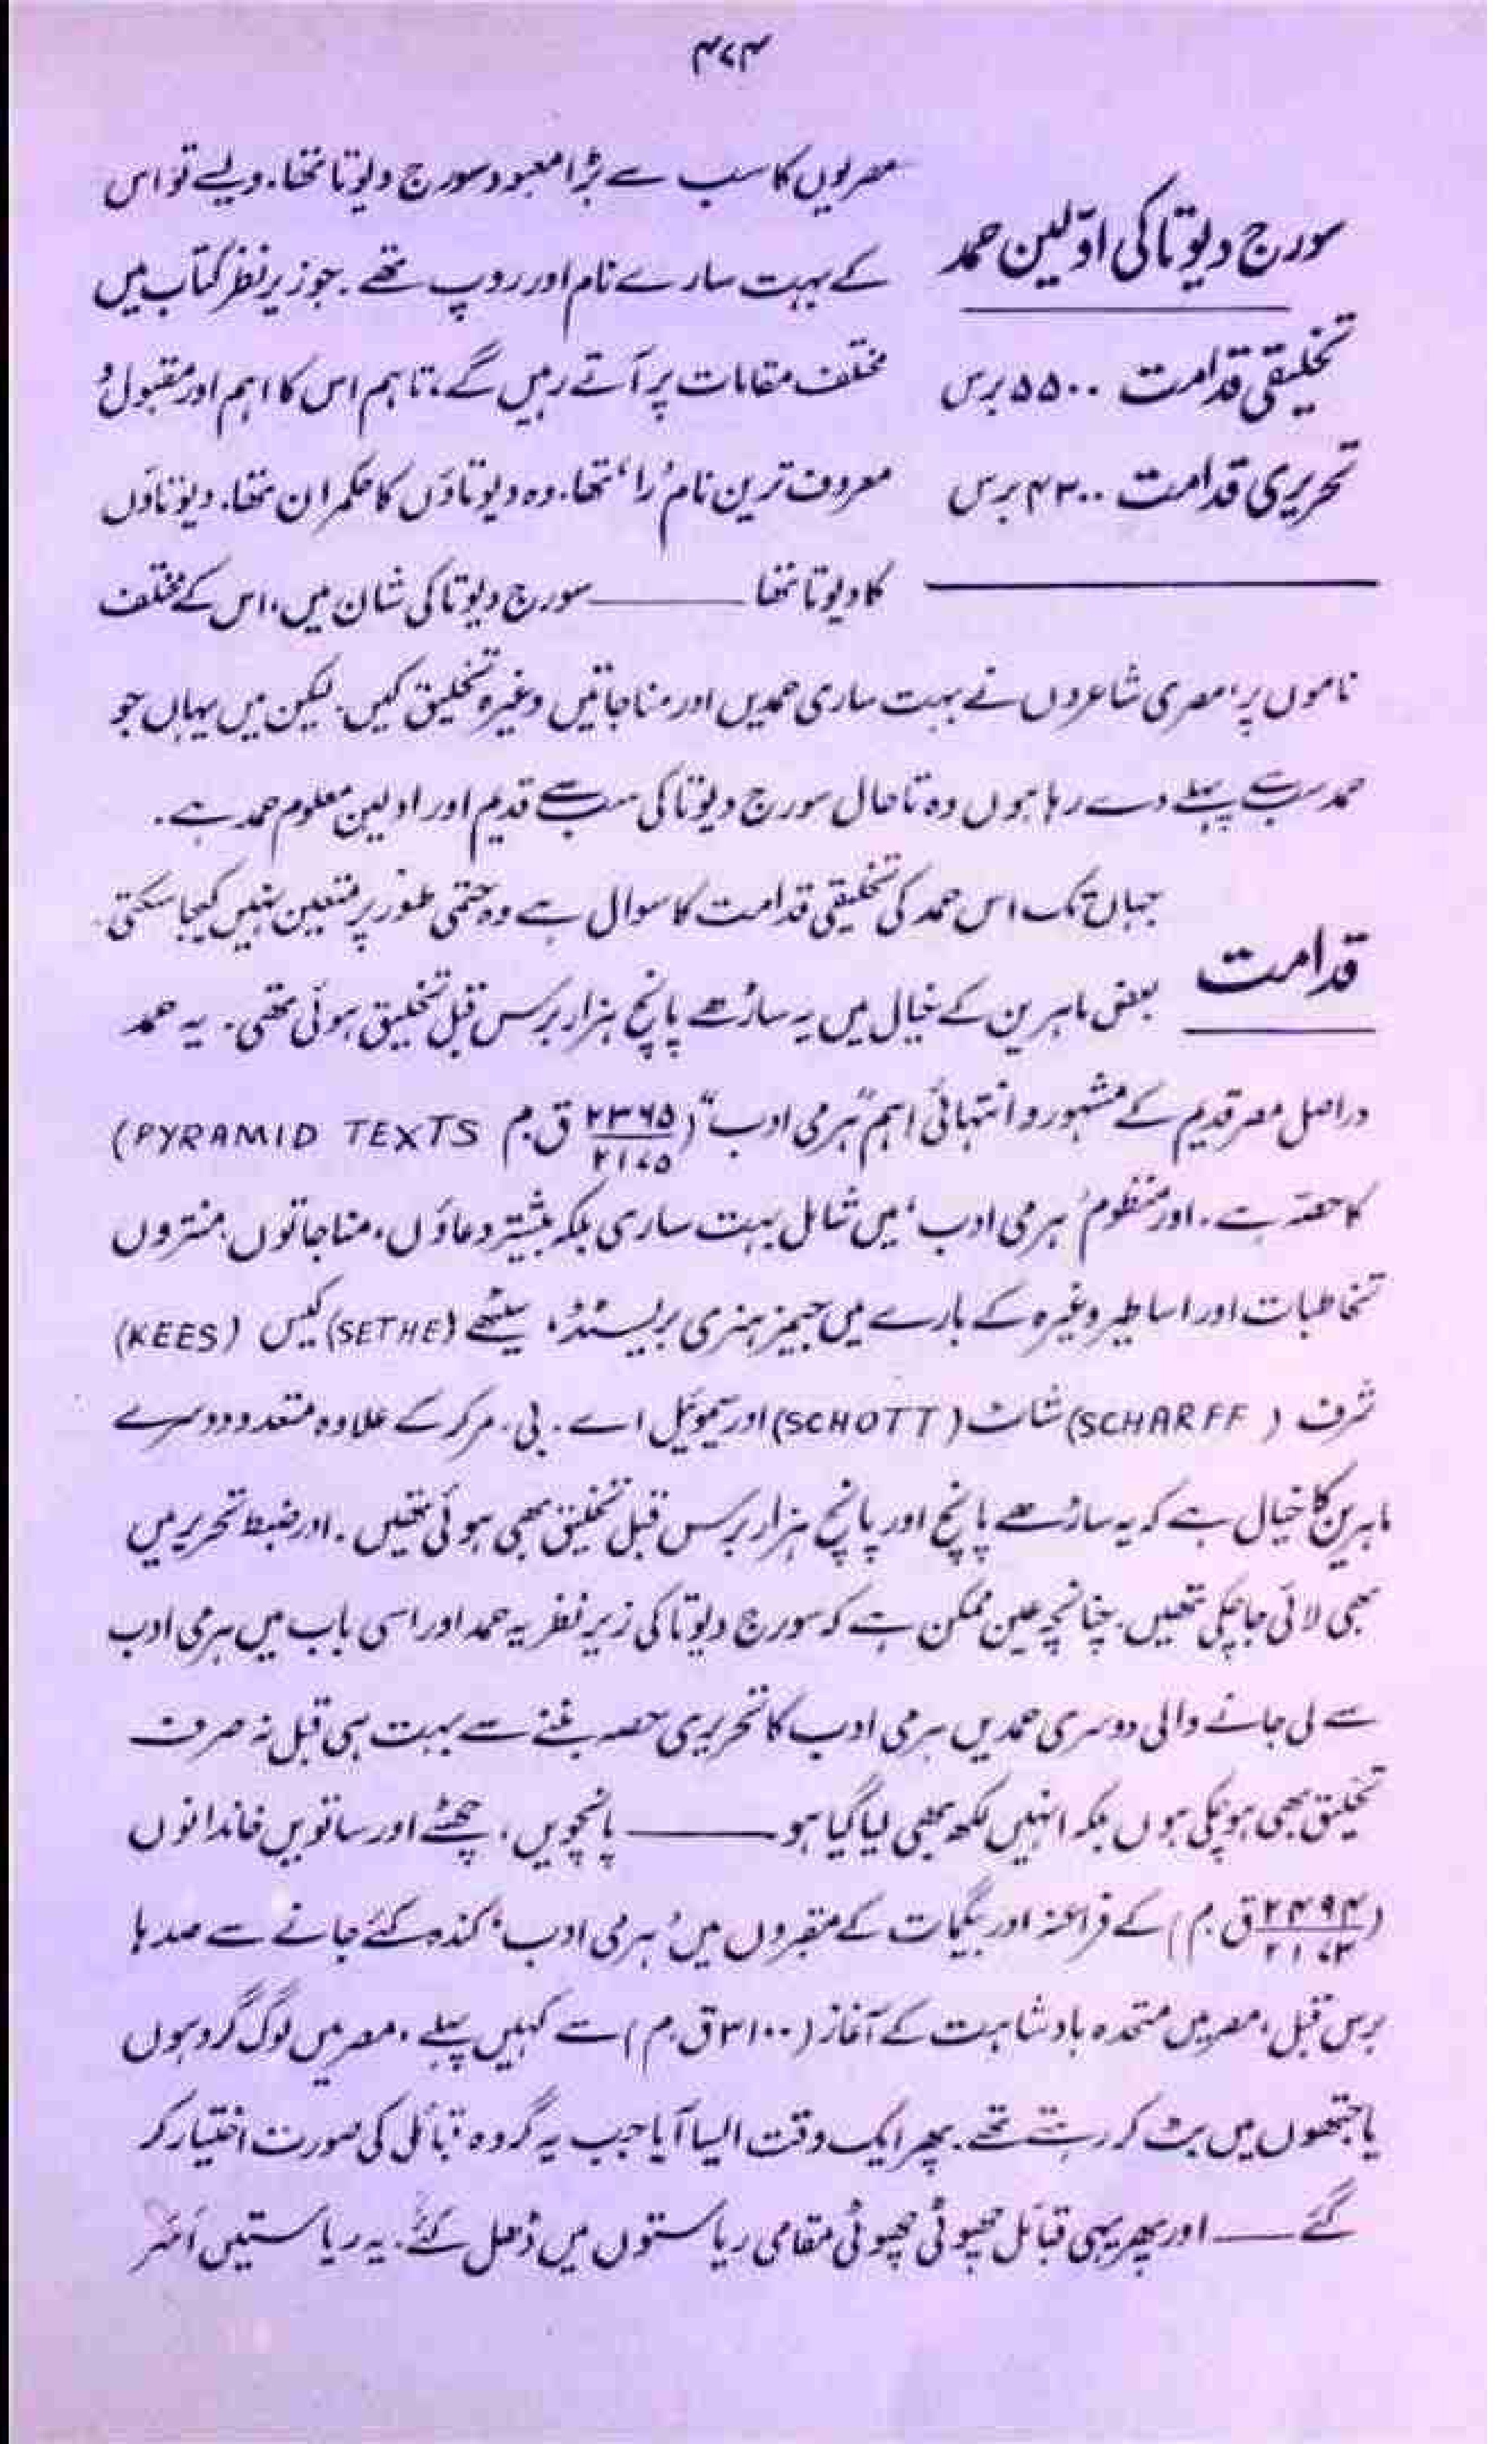 ۴۷۴
سورج دیوتا کی اوّلین حمد
تخلیقی قدامت ۵۵۰۰ برس
تحریری قدامت ۴۳۰۰ برس
مصریوں کا سب سے بڑا معبود سورج دیوتا تھا۔ ویسے تو اس
کے بہت سارے نام اور روپ تھے۔ جو زیر نظر کتاب میں
مختلف مقامات پر آتے رہیں گے، تاہم اس کا اہم اور مقبول و
معروف ترین نام 'را' تھا۔ وہ دیوتاؤں کا حکمران تھا۔ دیوتاؤں
کا دیوتا تھا ——— سورج دیوتا کی شان میں، اس کے مختلف
ناموں پر، مصری شاعروں نے بہت ساری حمدیں اور مناجاتیں وغیرہ تخلیق کیں۔ لیکن میں یہاں جو
حمد سب سے پہلے دے رہا ہوں وہ تاحال سورج دیوتا کی سب سے قدیم اور اولین معلوم حمد ہے۔
قدامت
جہاں تک اس حمد کی تخلیقی قدامت کا سوال ہے وہ حتمی طور پر متعین نہیں کی جا سکتی۔
بعض ماہرین کے خیال میں یہ ساڑھے پانچ ہزار برس قبل تخلیق ہوئی تھی۔ یہ حمد
دراصل مصر قدیم کے مشہور و انتہائی اہم "ہرمی ادب" (۲۳۶۵/۲۱۷۵ ق م PYRAMID TEXTS)
کا حصہ ہے۔ اور منظوم 'ہرمی ادب' میں شامل بہت ساری بلکہ بیشتر دعاؤں، مناجاتوں، منتروں
تخاطبات اور اساطیر وغیرہ کے بارے میں جیمز ہنری بریسٹڈ، سیٹھے (SETHE) کیس (KEES)
شرف (SCHARFF) شاٹ (SCHOTT) اور سیموئیل اے۔ بی۔ مرکر کے علاوہ متعدد دوسرے
ماہرین کا خیال ہے کہ یہ ساڑھے پانچ اور پانچ ہزار برس قبل تخلیق بھی ہوئی تھیں۔ اور ضبط تحریر میں
بھی لائی جا چکی تھیں۔ چنانچہ عین ممکن ہے کہ سورج دیوتا کی زیر نظر یہ حمد اور اسی باب میں ہرمی ادب
سے لی جانے والی دوسری حمدیں ہرمی ادب کا تحریری حصہ بننے سے بہت ہی قبل نہ صرف
تخلیق بھی ہو چکی ہوں بلکہ انہیں لکھ بھی لیا گیا ہو ——— پانچویں، چھٹے اور ساتویں خاندانوں
(۲۴۹۴/۲۱۷۳ ق۔م) کے فراعنہ اور بیگمات کے مقبروں میں 'ہرمی ادب' کندہ کئے جانے سے صدہا
برس قبل، مصر میں متحدہ بادشاہت کے آغاز (۳۱۰۰ ق۔م) سے کہیں پہلے، مصر میں لوگ گروہوں
یا جتھوں میں بٹ کر رہتے تھے۔ پھر ایک وقت ایسا آیا جب یہ گروہ قبائل کی صورت اختیار کر
گئے —— اور پھر یہی قبائل چھوٹی چھوٹی مقامی ریاستوں میں ڈھل گئے۔ یہ ریاستیں